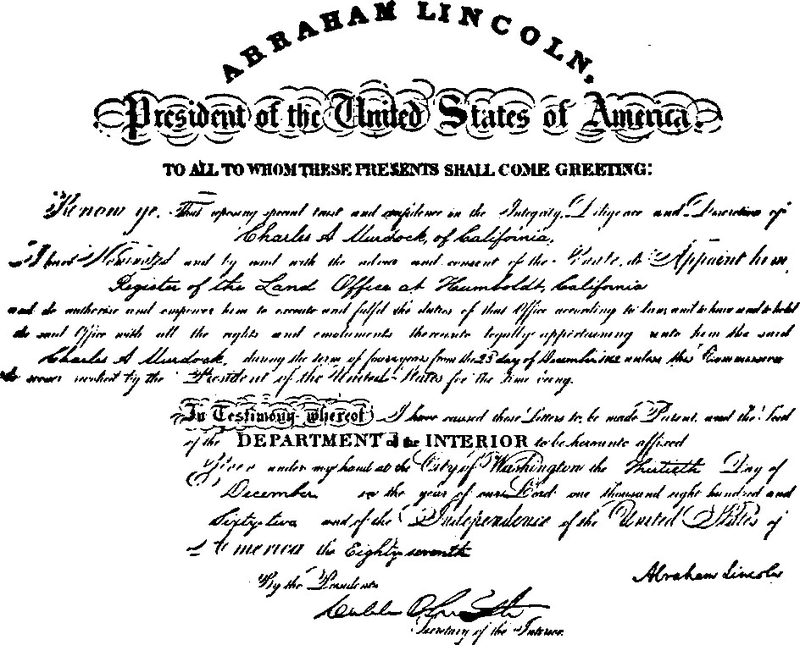 ABRAHAM LINCOLN,
President of the United States of America.
TO ALL TO WHOM THESE PRESENTS SHALL COME GREETING:
Know ye. That reposing special trust and confidence in the Integrity, Diligence and Discretion of
Charles A Murdock, of California,
I have Nominated and by and with the advice and consent of the Senate, do Appoint him
Register of the Land Office at Humboldt, California
and do authorise and empower him to execute and fulfil the duties of that Office according to law, and to have and to hold
the said Office with all the rights and emoluments thereunto legally appertaining unto him the said
Charles A Murdock, during the term of four years from the 23d day of December 1862 unless this Commission
be sooner revoked by the President of the United States for the time being.
In Testimony whereof I have caused these Letters to be made Patent, and the Seal
of the DEPARTMENT of the INTERIOR to be hereunto affixed
Given under my hand at the City of Washington the Thirtieth Day of
December in the year of our Lord one thousand eight hundred and
Sixty two and of the Independence of the United States of
America the Eighty seventh
By the President
Abraham Lincoln
Secretary of the Interior.